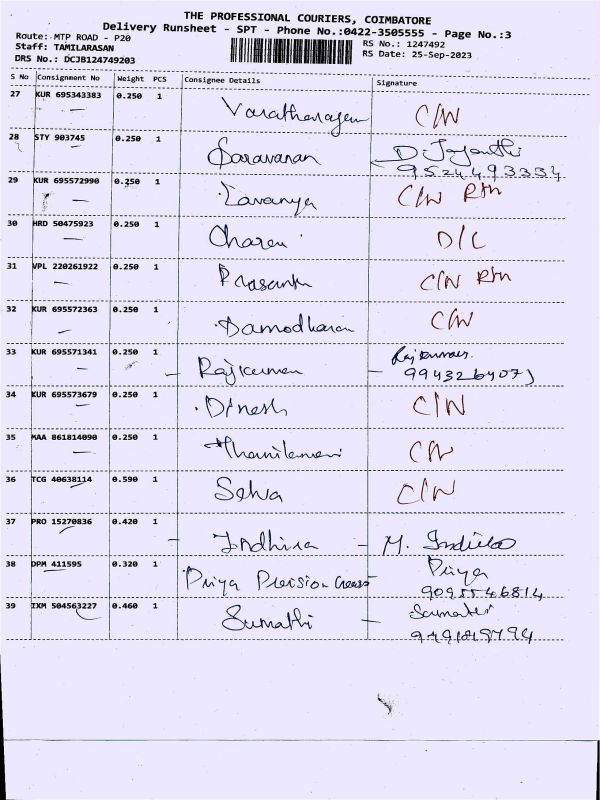 THE PROFESSIONAL COURIERS, COIMBATORE
Delivery Runsheet - SPT - Phone No.:0422-3505555 - Page No.:3
Route: MTP ROAD - P20
RS No.: 1247492
Staff: TAMILARASAN
RS Date: 25-Sep-2023
DRS No.: DCJB124749203
S No Consignment No Weight PCS Consignee Details Signature
27 KUR 695343383 0.250 1 Varatharajan C/N
28 STY 903745 0.250 1 Saravanan D. Jayanthi
9524493334
29 KUR 695572990 0.250 1 Lavanya C/N Rtn
30 HRD 50475923 0.250 1 Charan D/L
31 VPL 220261922 0.250 1 Prasanth C/N Rtn
32 KUR 695572363 0.250 1 Damodharan C/N
33 KUR 695571341 0.250 1 Rajkumar Rajkumar
34 KUR 695573679 0.250 1 Dinesh C/N
35 MAA 861814090 0.250 1 C/N
36 TCG 40638114 0.590 1 Selva C/N
37 PRO 15270836 0.420 1 Indhira - M. Indira
38 DPM 411595 0.320 1 Priya Precision Priya
9095546814
39 IXM 504563227 0.460 1 Sumathi - Sumathi